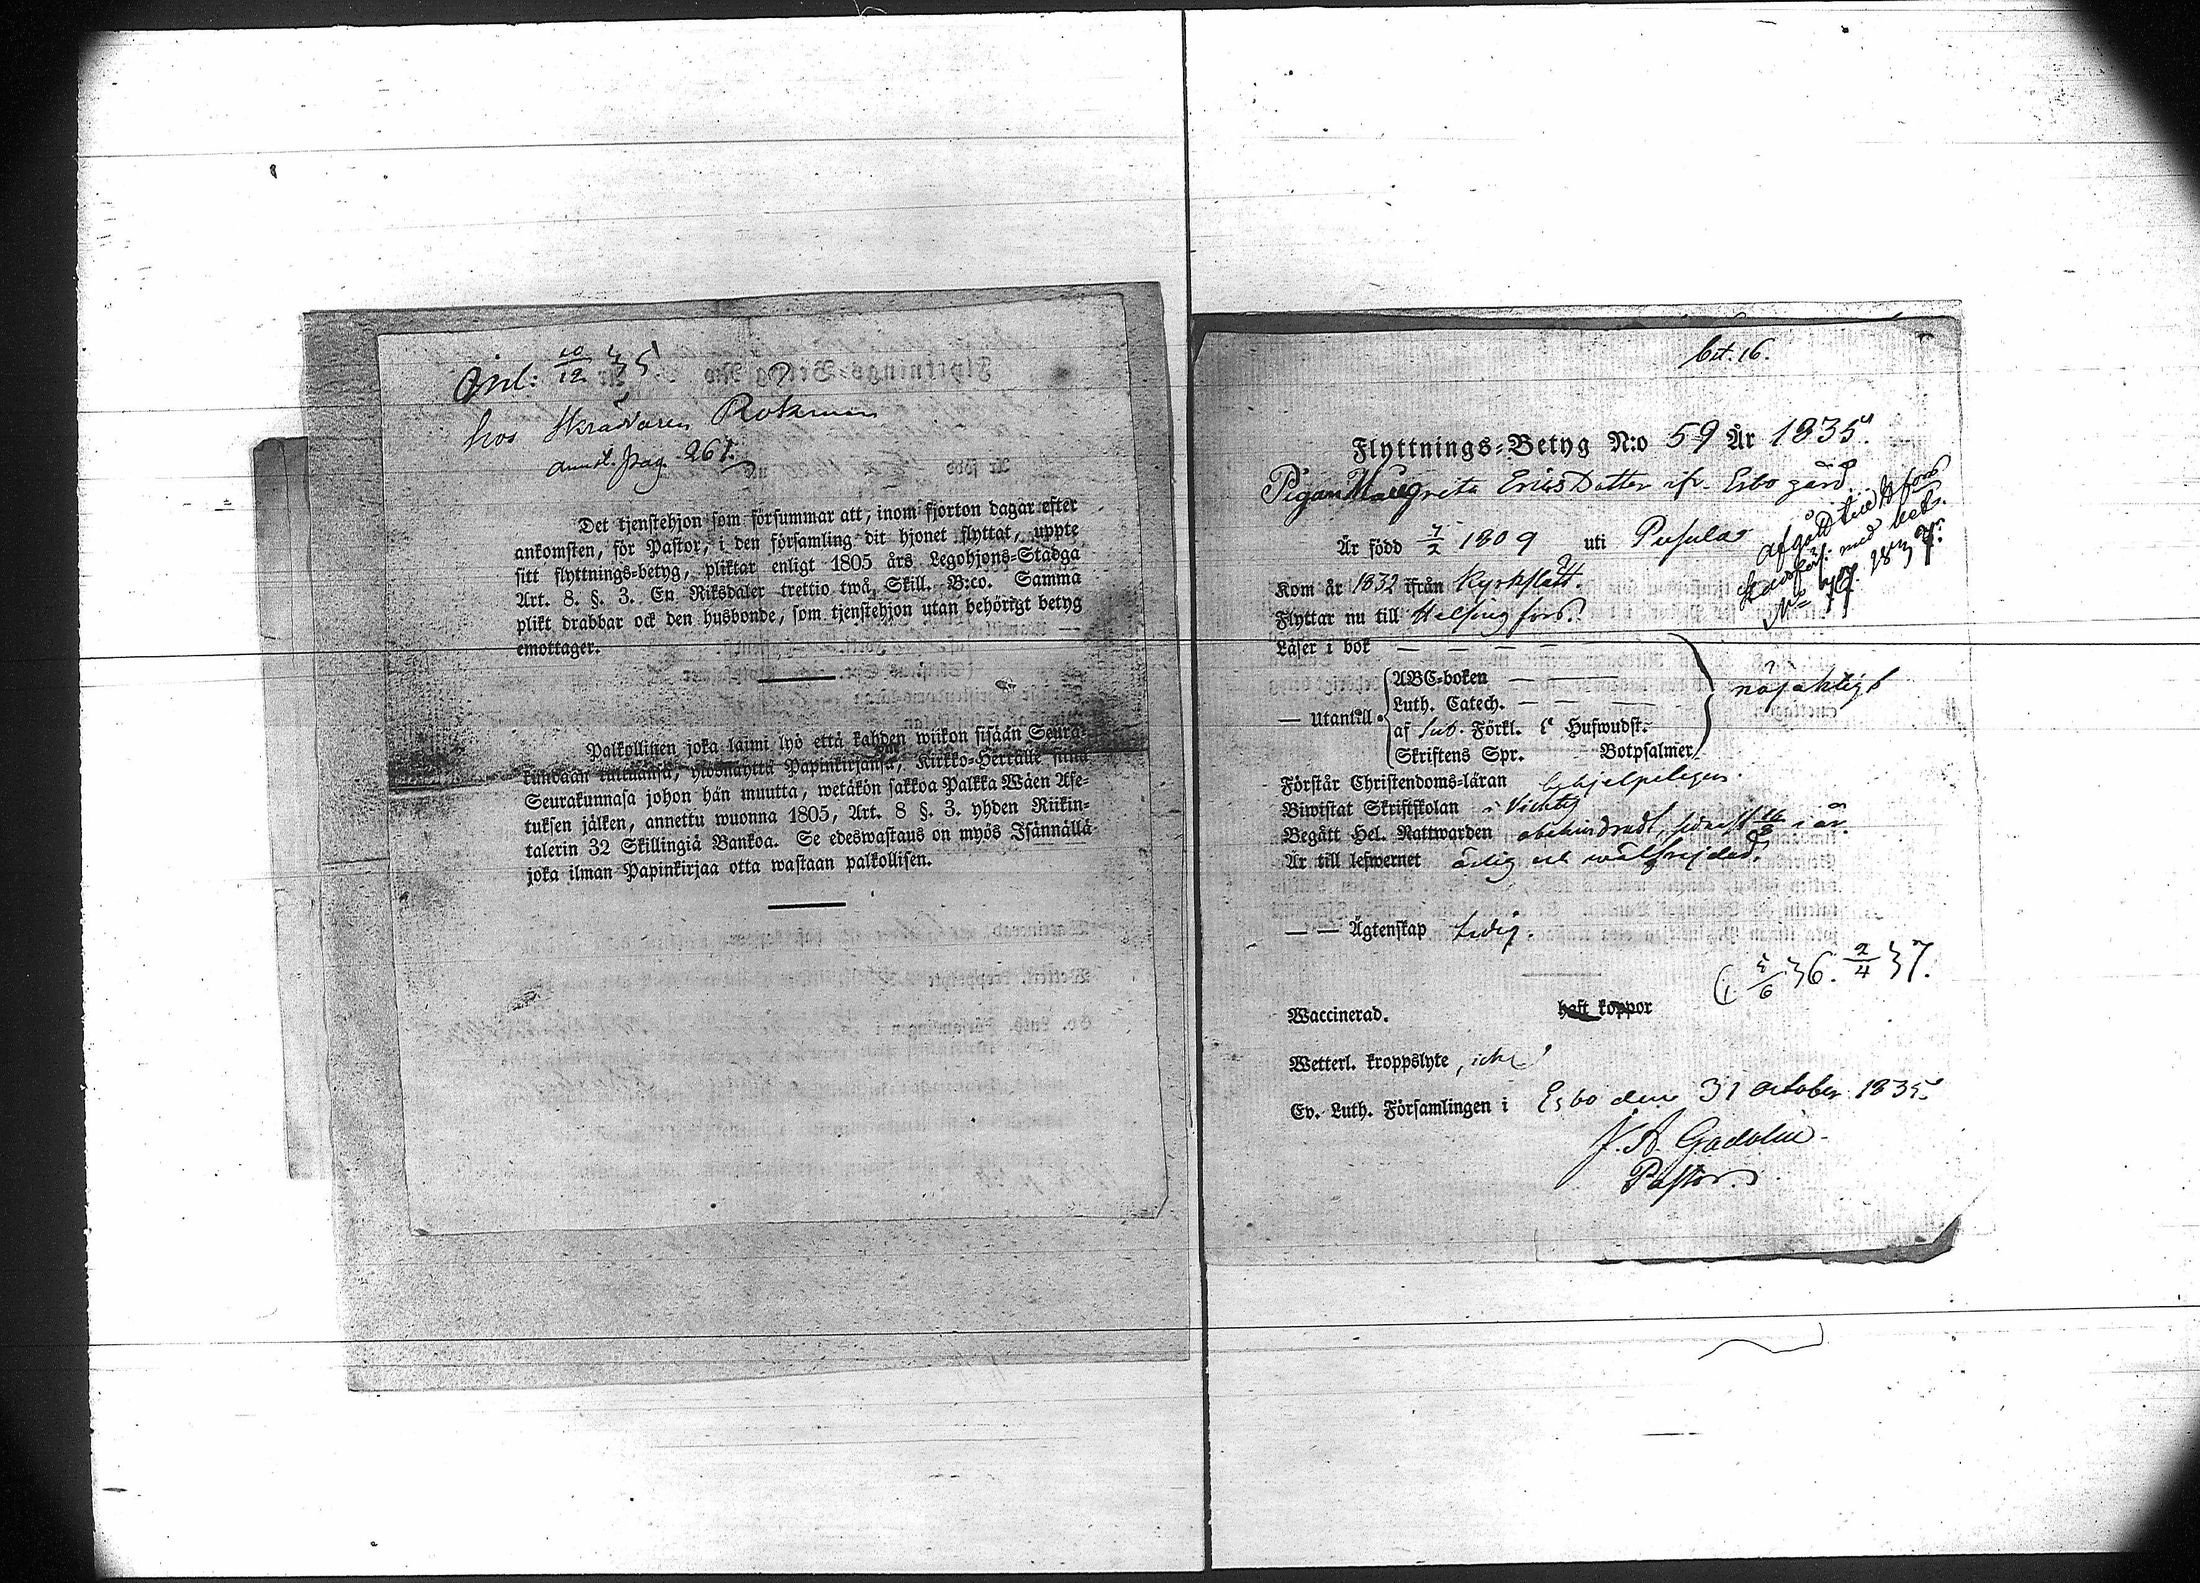 Anl: 10/12 35.
hos Skräddaren Rokman
annot. pag. 267.
Det tjenstehjon som försummar att, inom fjorton dagar efter
ankomsten, för Pastor, i den församling dit hjonet flyttat, uppte
sitt flyttnings-betyg, pliktar enligt 1805 års Legohjons-Stadga
Art. 8. §. 3. En Riksdaler trettio twå Skill. B:co. Samma
plikt drabbar ock den husbonde, som tjenstehjon utan behörigt betyg
emottager.
Palkollinen joka laimi lyö että kahden wiikon sisään Seura-
kundaan tultuansa, ylösnäyttä Papinkirjansa, Kirkko-Herralle siinä
Seurakunnasa johon hän muutta, wetäkön sakkoa Palkka Wäen Ase-
tuksen jälken, annettu wuonna 1805, Art. 8 §. 3. yhden Riikin-
talerin 32 Skillingiä Bankoa. Se edeswastaus on myös Isännällä
joka ilman Papinkirjaa otta wastaan palkollisen.
bet. 16.
Flyttnings-Betyg N:o 59 År 1835.
Pigan Margreta Ericsdotter ifr. Esbo gård
Är född 7/2 1809 uti Pusula
afgått till H:fors
med bet.
N:o 77. 1837.
Kom år 1832 ifrån Kyrkslätt.
Flyttar nu till Helsingfors.
Läser i bok — — — —
— Utantill
ABC-boken — — —
Luth. Catech. — — —
af Sub. Förkl. Hufwudst.
Skriftens Spr. Botpsalmer
nöjaktigt
Förstår Christendoms-läran behjelpeligen.
Biwistat Skriftskolan i Vichtis
Begått Hel. Nattwarden obehindradt, sidnast 16/8 i år.
Är till lefwernet ärlig och wälfrejdad.
— — Ägtenskap Ledig.
5/6 36. 2/4 37.
Waccinerad. haft koppor
Wetterl. kroppslyte, icke
Ev. Luth. Församlingen i Esbo den 31 october 1835.
J. A. Gadolin
Pastor.